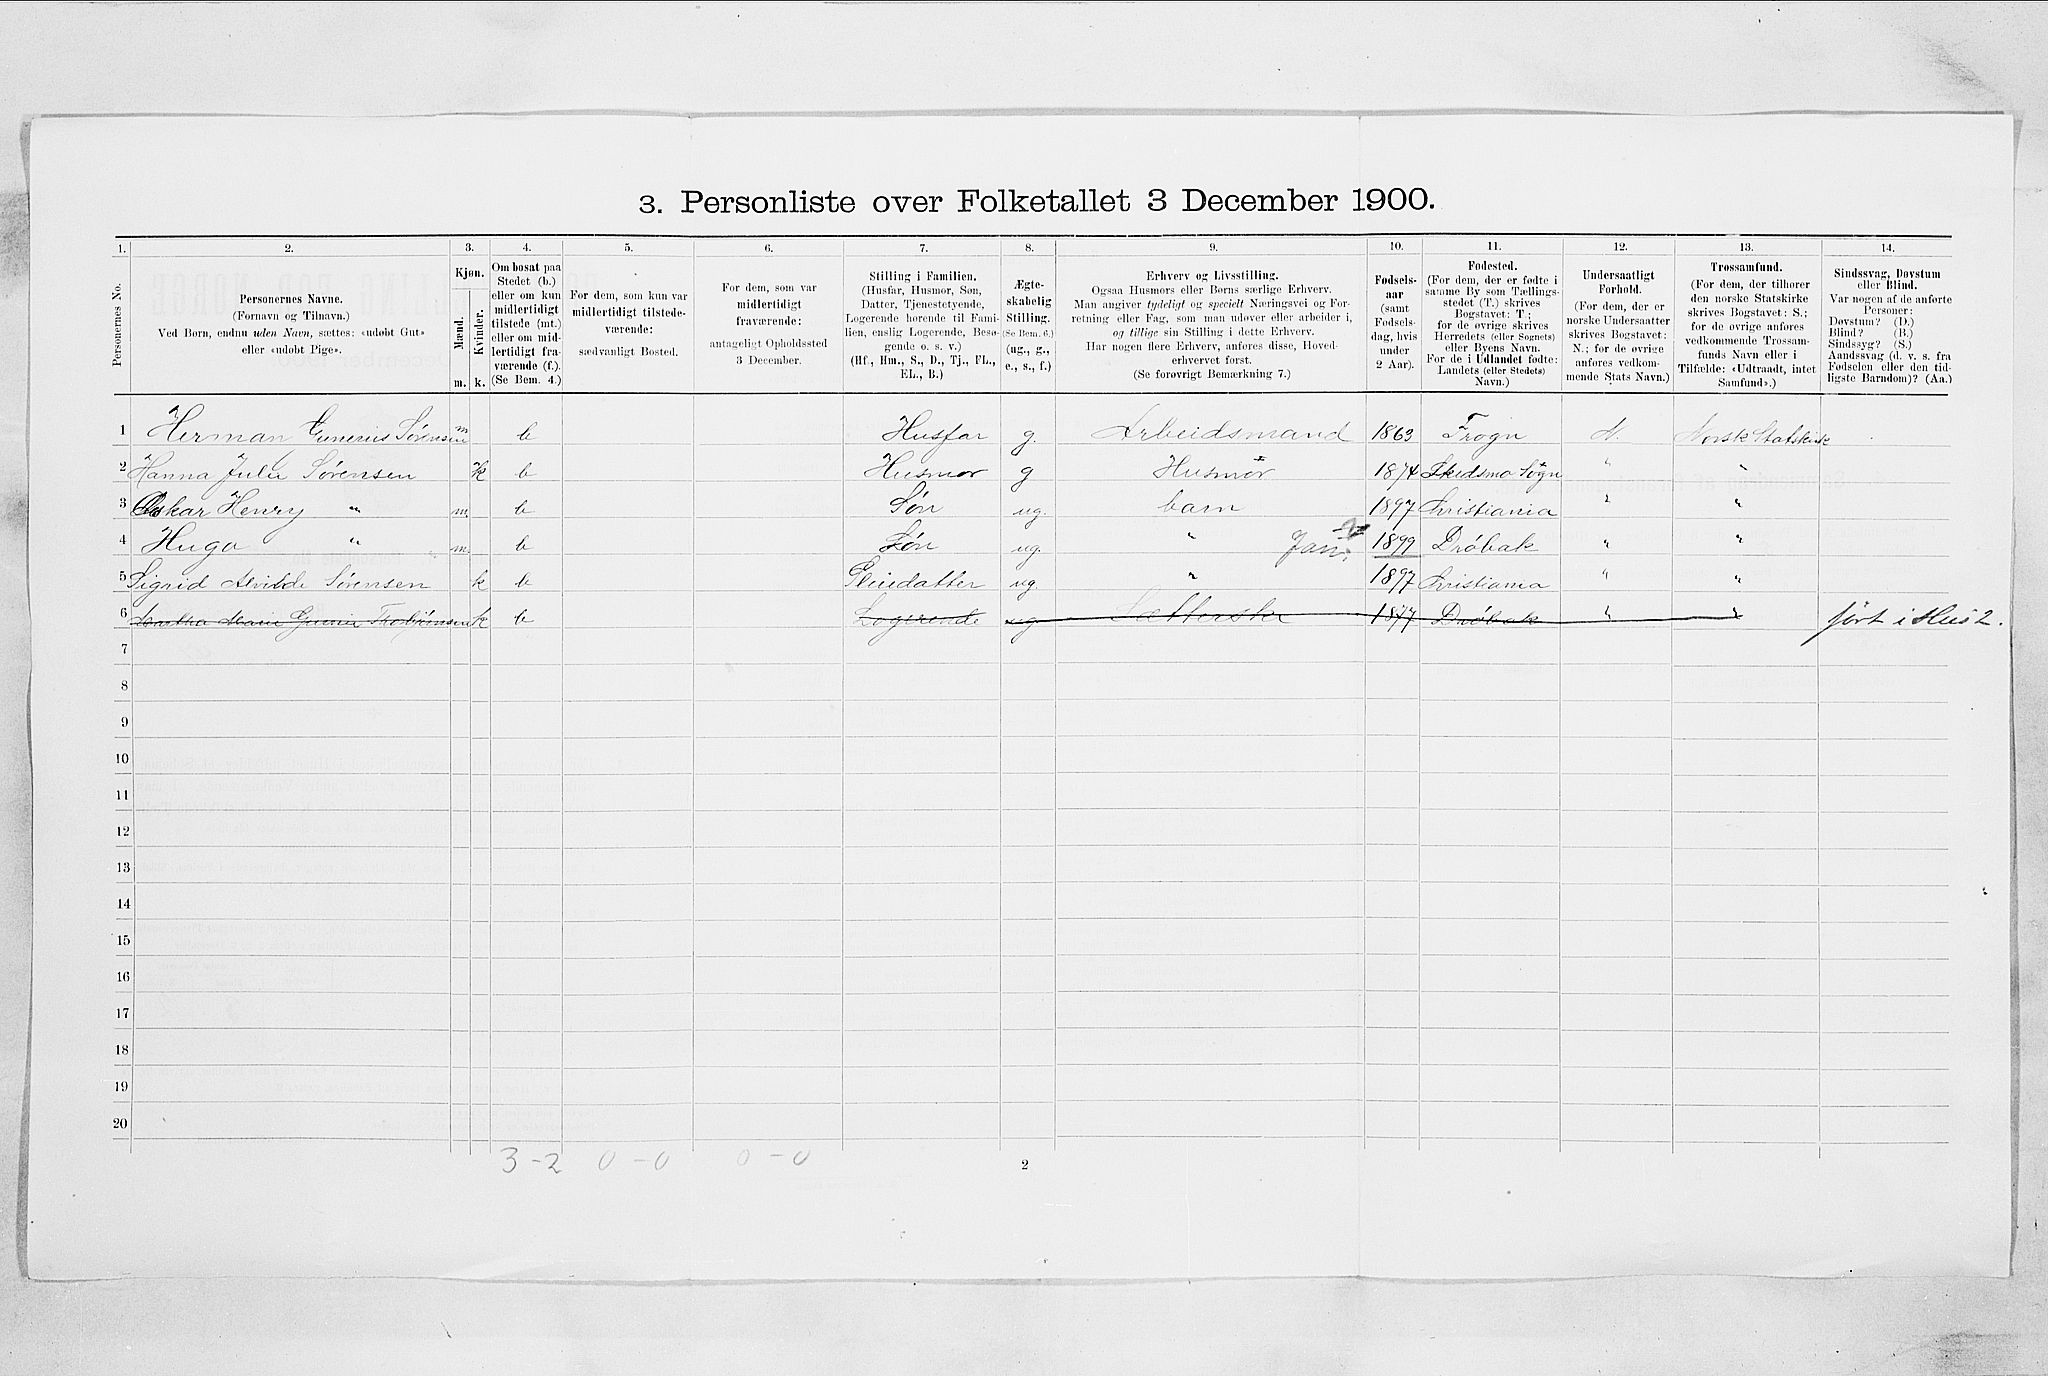 3. Personliste over Folketallet 3 December 1900.
1. 2. 3. 4. 5. 6. 7. 8. 9. 10. 11. 12. 13. 14.
Personernes No.
Personernes Navne.
(Fornavn og Tilnavn.)
Ved Børn, endnu uden Navn, sættes: «udøbt Gut»
eller «udøbt Pige».
Kjøn.
Mænd. Kvinder.
m. k.
Om bosat paa
Stedet (b.)
eller om kun
midlertidigt
tilstede (mt.)
eller om mid-
lertidigt fra-
værende (f.).
(Se Bem. 4.)
For dem, som kun var
midlertidigt tilstede-
værende:
sædvanligt Bosted.
For dem, som var
midlertidigt
fraværende:
antageligt Opholdssted
3 December.
Stilling i Familien.
(Husfar, Husmor, Søn,
Datter, Tjenestetyende,
Logerende hørende til Fami-
lien, enslig Logerende, Besø-
gende o. s. v.)
(Hf., Hm., S., D., Tj., FL.,
EL., B.)
Ægte-
skabelig
Stilling.
(Se Bem. 6.)
(ug., g.,
e., s., f.)
Erhverv og Livsstilling.
Ogsaa Husmors eller Børns særlige Erhverv.
Man angiver tydeligt og specielt Næringsvei og For-
retning eller Fag, som man udøver eller arbeider i,
og tillige sin Stilling i dette Erhverv.
Har nogen flere Erhverv, anføres disse, Hoved-
erhvervet først.
(Se forøvrigt Bemærkning 7.)
Fødsels-
aar
(samt
Fødsels-
dag, hvis
under
2 Aar).
Fødested.
(For dem, der er fødte i
samme By som Tællings-
stedet (T.) skrives
Bogstavet: T;
for de øvrige skrives
Herredets (eller Sognets)
eller Byens Navn.
For de i Udlandet fødte:
Landets (eller Stedets)
Navn.)
Undersaatligt
Forhold.
(For dem, der er
norske Undersaatter
skrives Bogstavet:
N.; for de øvrige
anføres vedkom-
mende Stats Navn.)
Trossamfund.
(For dem, der tilhører
den norske Statskirke
skrives Bogstavet: S.;
for de øvrige anføres
vedkommende Trossam-
funds Navn eller i
Tilfælde: «Udtraadt, intet
Samfund».)
Sindssvag, Døvstum
eller Blind.
Var nogen af de anførte
Personer:
Døvstum? (D.)
Blind? (B.)
Sindssyg? (S.)
Aandssvag (d. v. s. fra
Fødselen eller den tid-
ligste Barndom)? (Aa.)
1 Herman Gunerius Sørensen m b Husfar g. Arbeidsmand 1863 Frogn N. Norsk Statskirk
2 Hanna Julie Sørensen k b Husmor g Husmor 1874 Skedsmo Sogn " "
3 Oskar Henry " m. b Søn ug. barn 1897 Christiania " "
4 Hugo " m. b Søn ug. " Jan: 1899 Drøbak " "
5 Sigrid Alvilde Sørensen k b Pleiedatter ug. " 1897 Christiania " "
6 Marie k b Logerende ug 1877 Drøbak " " ført i Hus 2.
7
8
9
10
11
12
13
14
15
16
17
18
19
20
3 - 2 0 - 0 0 - 0
2